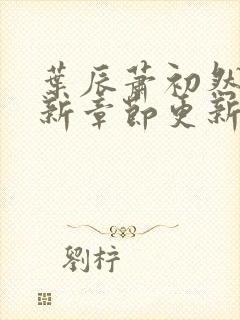 葉辰蕭初然
新章節更新
劉梓